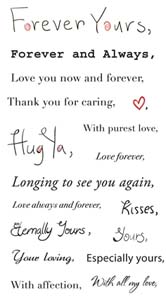 Forever Yours,
Forever and Always,
Love you now and forever,
Thank you for caring,
With purest love,
Hug Ya,
Love forever,
Longing to see you again,
Love always and forever,
Kisses,
Eternally Yours,
Yours,
Your loving,
Especially yours,
With affection,
With all my love,